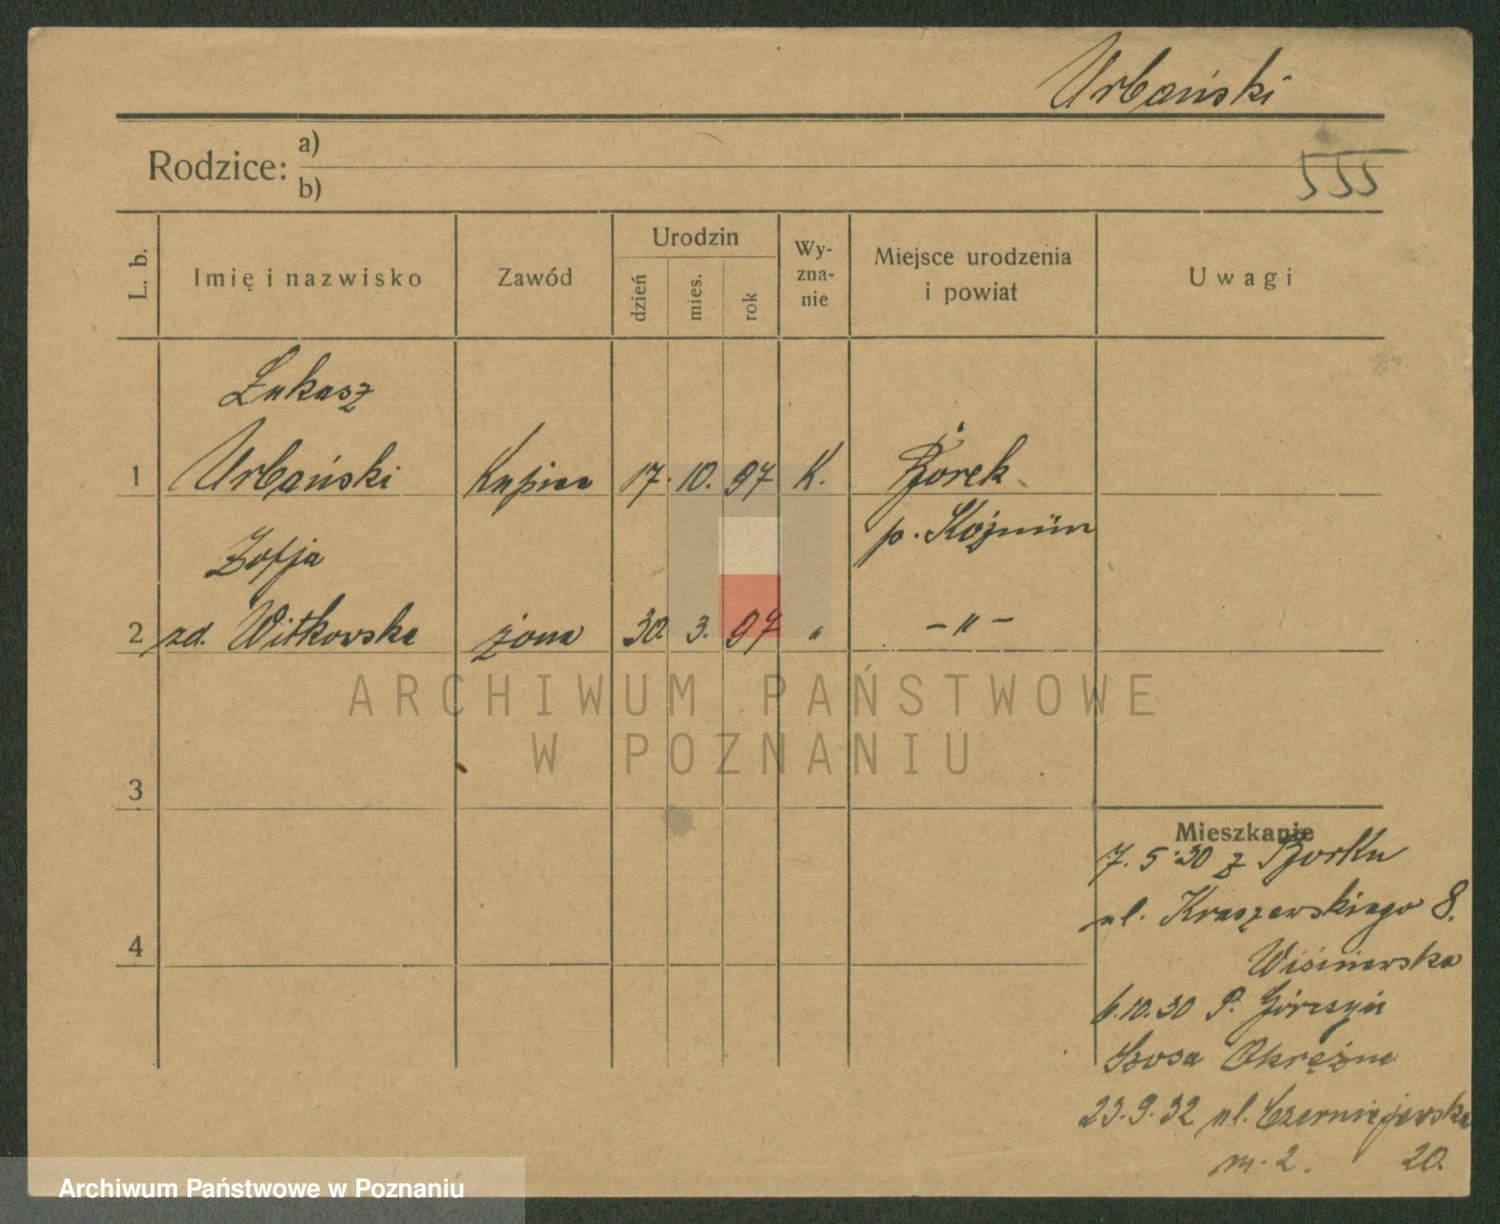 Urbański
Rodzice: a)
b)
555
L. b. Imię i nazwisko Zawód Urodzin dzień mies. rok Wy-zna-nie Miejsce urodzenia i powiat Uwagi
Łukasz
1 Urbański Kupiec 17. 10. 97 K. Borek
p. Koźmin
Zofja
2 zd. Witkowska żona 30. 3. 97 " - " -
3
4
Mieszkanie
7.5.30 z Borku
ul. Kraszewskiego 8.
Wiśniewska
6.10.30 P. Górczyn
Szosa Okrężna
23.9.32 ul. Czerniejewska
m. 2. 20.
ARCHIWUM PAŃSTWOWE
W POZNANIU
Archiwum Państwowe w Poznaniu